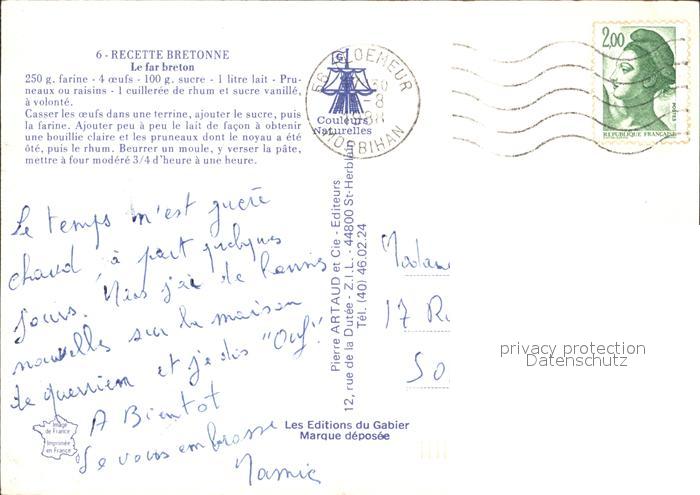 6 - RECETTE BRETONNE
Le far breton
250 g. farine - 4 œufs - 100 g. sucre - 1 litre lait - Pru-
neaux ou raisins - 1 cuillerée de rhum et sucre vanillé,
à volonté.
Casser les œufs dans une terrine, ajouter le sucre, puis
la farine. Ajouter peu à peu le lait de façon à obtenir
une bouillie claire et les pruneaux dont le noyau a été
ôté, puis le rhum. Beurrer un moule, y verser la pâte,
mettre à four modéré 3/4 d'heure à une heure.
56 PLOEMEUR
MORBIHAN
Couleurs
Naturelles
2,00
POSTES
REPUBLIQUE FRANÇAISE
Le temps m'est guère
chaud à part quelques
jours. Mais j'ai de bonnes
nouvelles sur la maison
de querrien et je dis "Ouf!"
A Bientôt
Je vous embrasse
Pierre ARTAUD et Cie - Editeurs
12, rue de la Dutée - Z.I.L. - 44800 St-Herblain
Tél. (40) 46.02.24
Madam
17 Ru
So
privacy protection
Datenschutz
Les Editions du Gabier
Marque déposée
Image
de France
Imprimée
en France